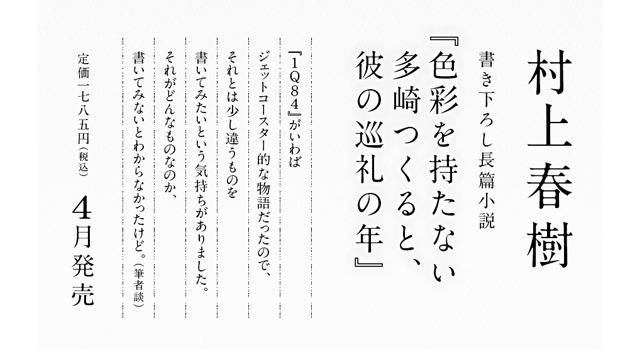 村上春樹
書き下ろし長篇小説
『色彩を持たない
多崎つくると、
彼の巡礼の年』
『1Q84』がいわば
ジェットコースター的な物語だったので、
それとは少し違うものを
書いてみたいという気持ちがありました。
それがどんなものなのか、
書いてみないとわからなかったけど。（筆者談）
定価一七八五円（税込）
4月発売